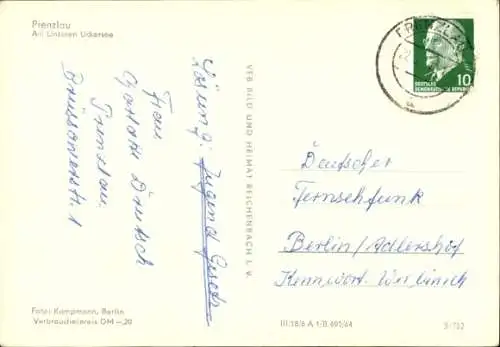 Prenzlau
Am Unteren Uckersee
Lösung: Jugend Gesetz
Frau
Deutsch
Prenzlau
Brüssowerstr. 1
Foto: Kampmann, Berlin
Verbraucherpreis DM -,20
VEB BILD UND HEIMAT REICHENBACH I. V.
PRENZLAU
DEUTSCHE
DEMOKRATISCHE REPUBLIK
10
Deutscher
Fernsehfunk
Berlin/Adlershof
Kennwort:
III/18/6 A 1/B 692/64